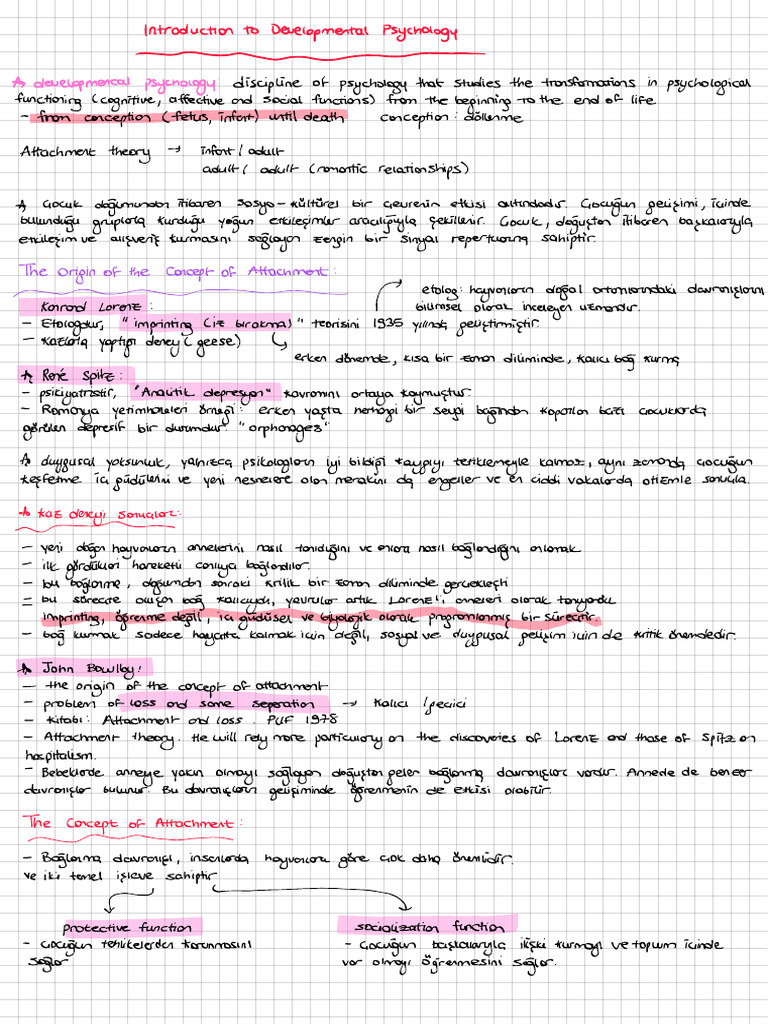 Introduction to Developmental Psychology
developmental psychology discipline of psychology that studies the transformations in psychological
functioning (cognitive, affective and social functions) from the beginning to the end of life.
- from conception (fetus, infant) until death conception: döllenme
Attachment theory → infant / adult
adult / adult (romantic relationships)
Çocuk doğumundan itibaren sosyo-kültürel bir çevrenin etkisi altındadır. Çocuğun gelişimi, içinde
bulunduğu gruplarla kurduğu yoğun etkileşimler aracılığıyla şekillenir. Çocuk, doğuştan itibaren başkalarıyla
etkileşim ve alışveriş kurmasını sağlayan zengin bir sinyal repertuarına sahiptir.
The Origin of the Concept of Attachment:
etolog: hayvanların doğal ortamlarındaki davranışlarını
bilimsel olarak inceleyen uzmandır.
Konrad Lorenz:
- Etologdur, "imprinting (iz bırakma)" teorisini 1935 yılında geliştirmiştir.
- Kazlarla yaptığı deney (geese)
erken dönemde, kısa bir zaman diliminde, kalıcı bağ kurma
René Spitz:
- psikiyatristir, "Analitik depresyon" kavramını ortaya koymuştur.
- Romanya yetimhaneleri örneği: erken yaşta herhangi bir sevgi bağından koparılan bazı çocuklarda
görülen depresif bir durumdur "orphanages"
duygusal yoksunluk, yalnızca psikologların iyi bildiği kaygıyı tetiklemeyle kalmaz, aynı zamanda çocuğun
keşfetme iç güdülerini ve yeni nesnelere olan merakını da engeller ve en ciddi vakalarda otizmle sonuçla.
Kaz deneyi sonuçları:
- yeni doğan hayvanların annelerini nasıl tanıdığını ve onlara nasıl bağlandığını anlamak
- ilk gördükleri hareketli canlıya bağlandılar.
- bu bağlanma, doğumdan sonraki kritik bir zaman diliminde gerçekleşti
- bu süreçte oluşan bağ kalıcıydı, yavrular artık Lorenz'i anneleri olarak tanıyordu
- imprinting, öğrenme değil, iç güdüsel ve biyolojik olarak programlanmış bir süreçtir.
- bağ kurmak sadece hayatta kalmak için değil, sosyal ve duygusal gelişim için de kritik önemdedir.
John Bowlby:
- the origin of the concept of attachment
- problem of loss and some seperation → kalıcı / geçici
- kitabı: Attachment and loss. PUF 1978
- Attachment theory. He will rely more particulary on the discoveries of Lorenz and those of Spitz on
hospitalism.
- Bebeklerde anneye yakın olmayı sağlayan doğuştan gelen bağlanma davranışları vardır. Annede de benzer
davranışlar bulunur. Bu davranışların gelişiminde öğrenmenin de etkisi olabilir.
The Concept of Attachment:
- Bağlanma davranışı, insanlarda hayvanlara göre çok daha önemlidir.
ve iki temel işleve sahiptir
protective function socialization function
- Çocuğun tehlikelerden korunmasını - Çocuğun başkalarıyla ilişki kurmayı ve toplum içinde
sağlar var olmayı öğrenmesini sağlar.